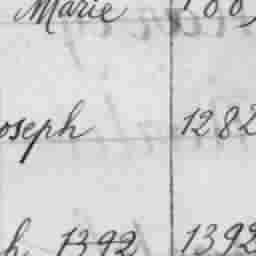 Marie
oseph 1282
h 1392 1392